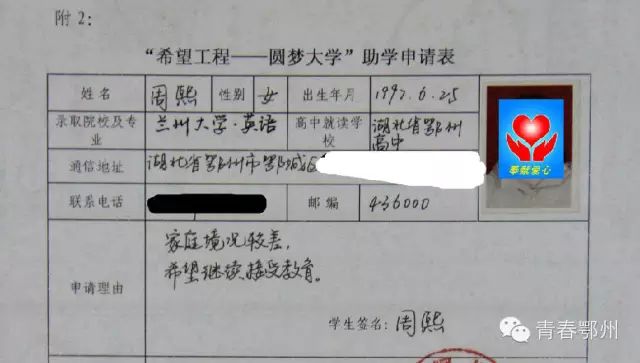 附2：
“希望工程——圆梦大学”助学申请表
姓名 周熙 性别 女 出生年月 1997.6.25
录取院校及专业 兰州大学·英语 高中就读学校 湖北省鄂州高中
通信地址 湖北省鄂州市鄂城区
联系电话 邮编 436000
申请理由 家庭境况较差，
希望继续接受教育。
学生签名：周熙
奉献爱心
青春鄂州